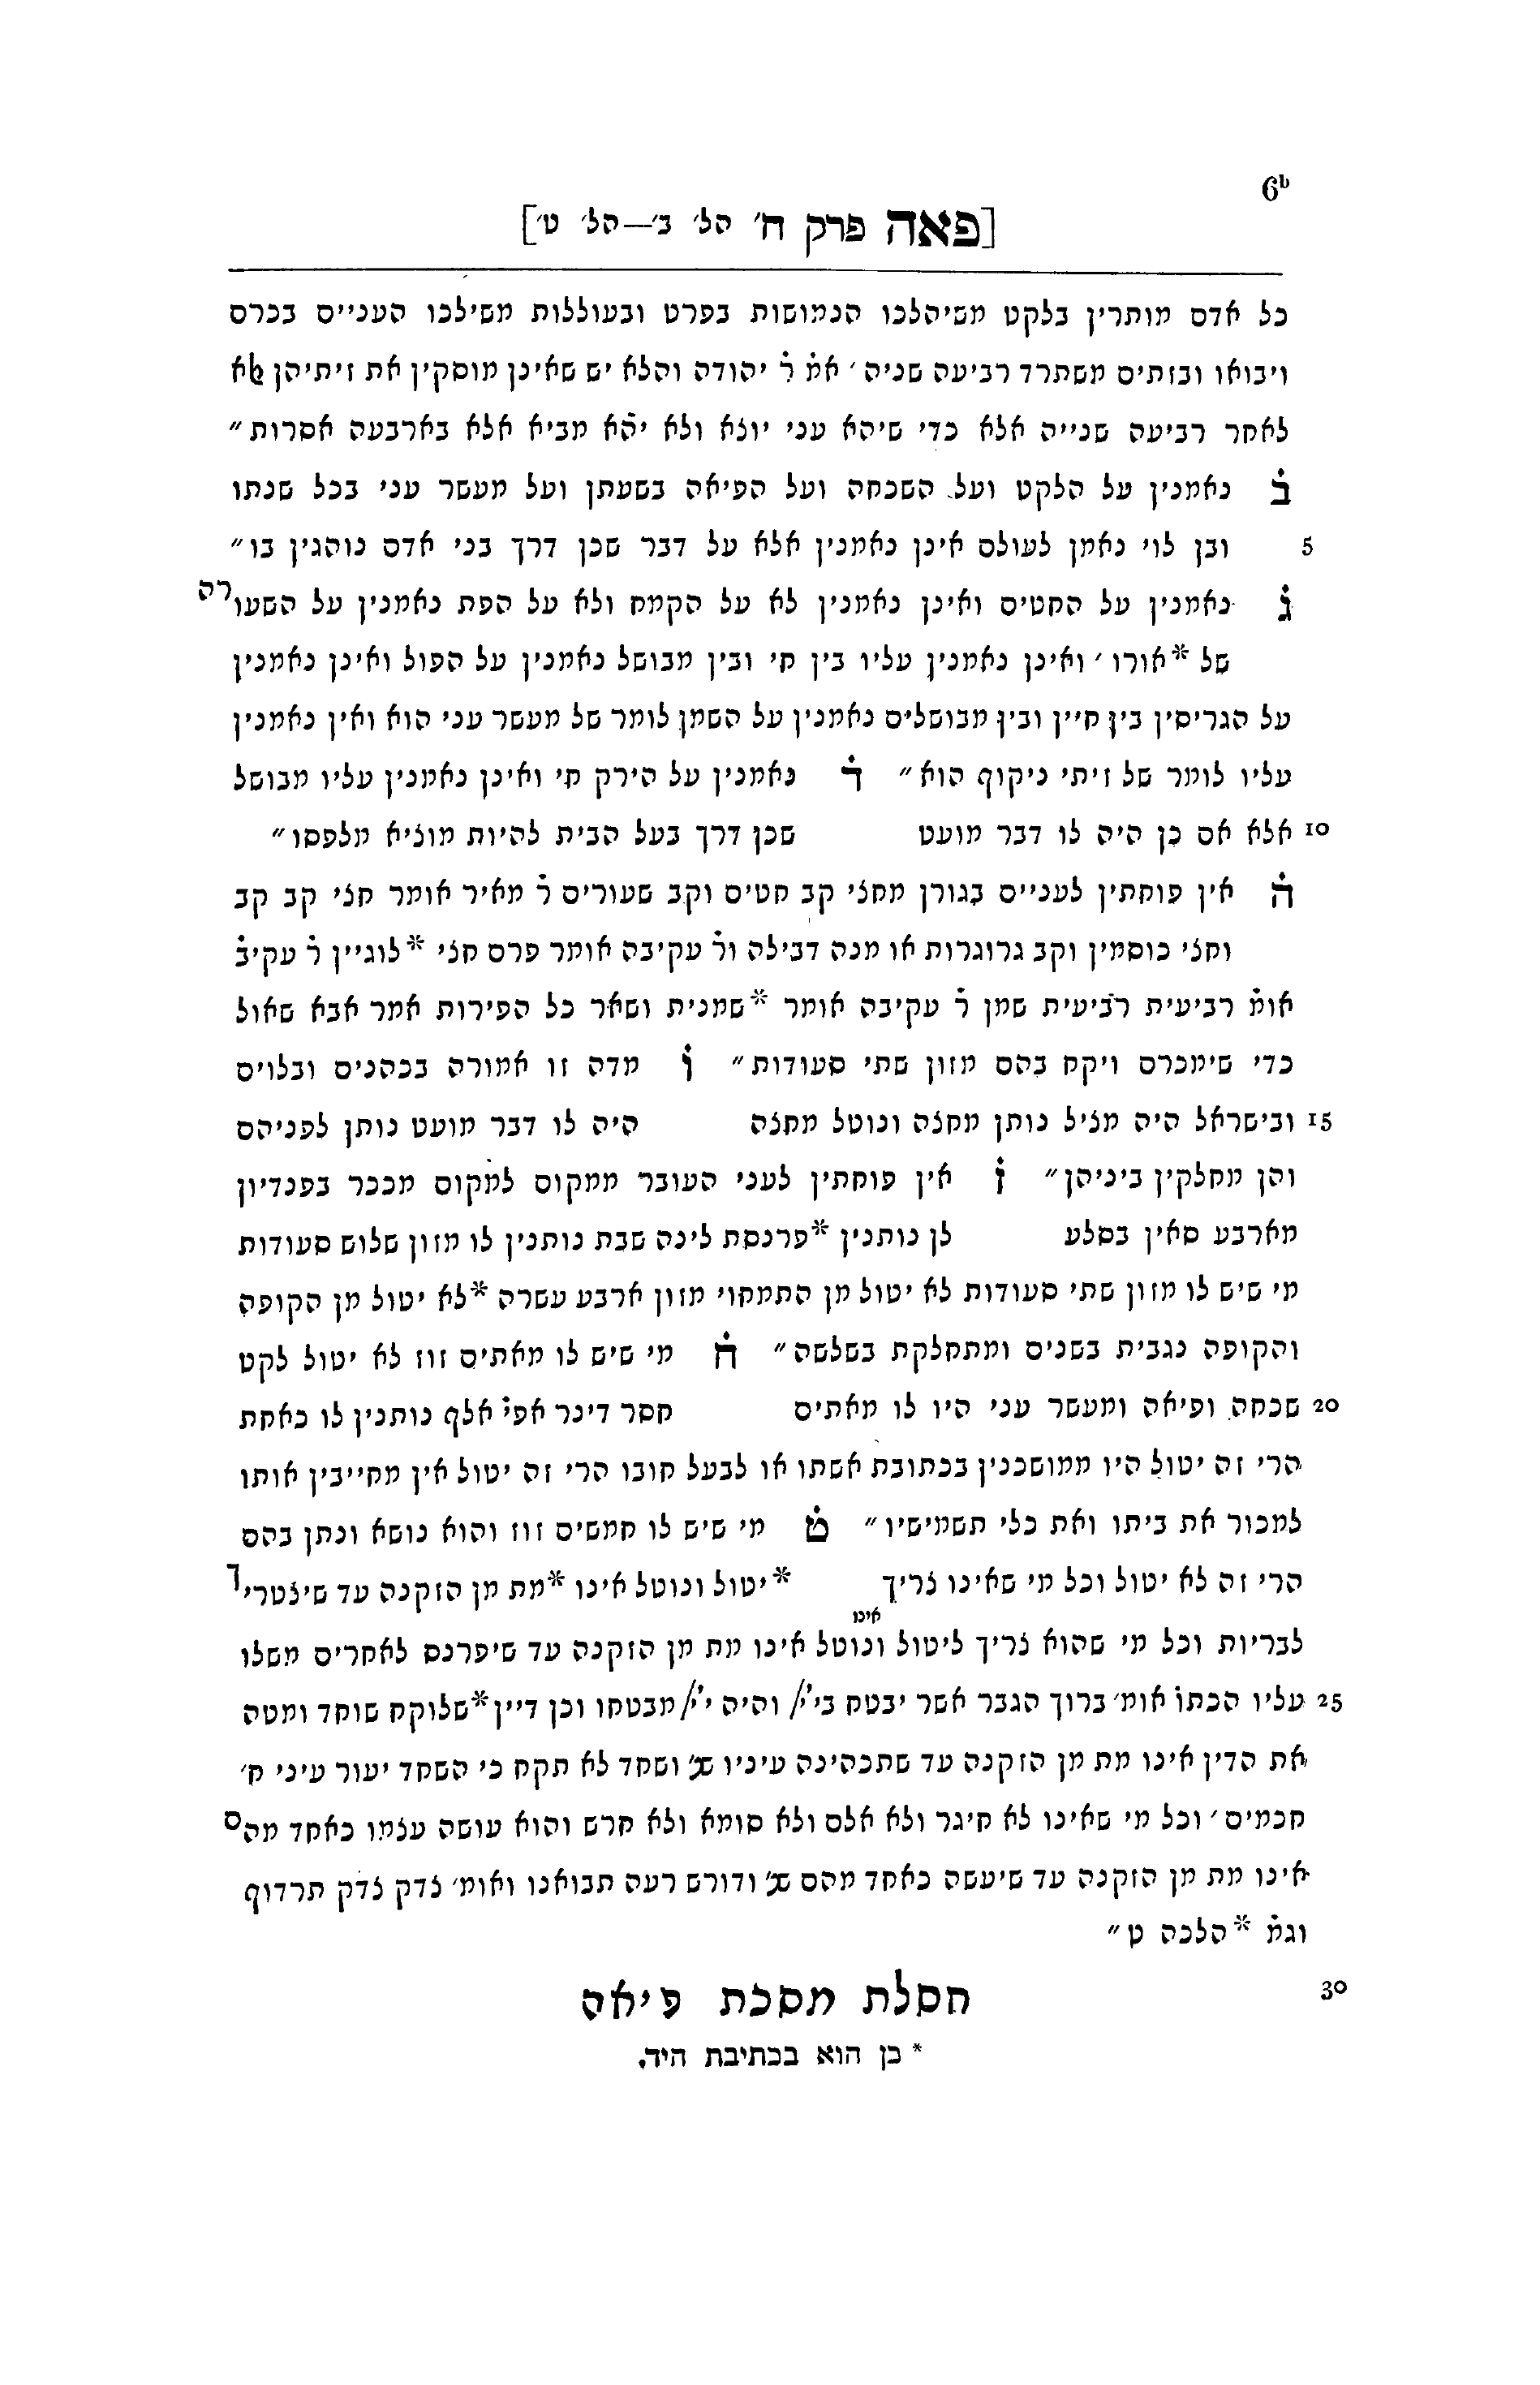 6b
[פאה פרק ח׳ הל׳ ב׳—הל׳ ט׳]
כל אדם מותרין בלקט משיהלכו הנמושות בפרט ובעוללות משילכו העניים בכרם
ויבואו ובזתים משתרד רביעה שניה׳ אמ׳ ר׳ יהודה והלא יש שאינן מוסקין את זיתיהן אלא
לאחר רביעה שנייה אלא כדי שיהא עני יוצא ולא יהא מביא אלא בארבעה אסרות״
ב נאמנין על הלקט ועל השכחה ועל הפיאה בשעתן ועל מעשר עני בכל שנתו
5 ובן לוי נאמן לעולם אינן נאמנין אלא על דבר שכן דרך בני אדם נוהגין בו״
ג נאמנין על החטים ואינן נאמנין לא על הקמח ולא על הפת נאמנין על השעורה
של *אורו׳ ואינן נאמנין עליו בין חי ובין מבושל נאמנין על הפול ואינן נאמנין
על הגריסין בין חיין ובין מבושלים נאמנין על השמן לומר של מעשר עני הוא ואין נאמנין
עליו לומר של זיתי ניקוף הוא״ ד נאמנין על הירק חי ואינן נאמנין עליו מבושל
10 אלא אם כן היה לו דבר מועט שכן דרך בעל הבית להיות מוציא מלפסו״
ה אין פוחתין לעניים בגורן מחצי קב חטים וקב שעורים ר׳ מאיר אומר חצי קב קב
וחצי כוסמין וקב גרוגרות או מנה דבילה ור׳ עקיבה אומר פרס חצי *לוגיין ר׳ עקיב׳
אומ׳ רביעית רביעית שמן ר׳ עקיבה אומר *שמנית ושאר כל הפירות אמר אבא שאול
כדי שימכרם ויקח בהם מזון שתי סעודות״ ו מדה זו אמורה בכהנים ובלוים
15 ובישראל היה מציל נותן מחצה ונוטל מחצה היה לו דבר מועט נותן לפניהם
והן מחלקין ביניהן״ ז אין פוחתין לעני העובר ממקום למקום מככר בפנדיון
מארבע סאין בסלע לן נותנין *פרנסת לינה שבת נותנין לו מזון שלוש סעודות
מי שיש לו מזון שתי סעודות לא יטול מן התמחוי מזון ארבע עשרה *לא יטול מן הקופה
והקופה נגבית בשנים ומתחלקת בשלשה״ ח מי שיש לו מאתים זוז לא יטול לקט
20 שכחה ופיאה ומעשר עני היו לו מאתים חסר דינר אפי׳ אלף נותנין לו כאחת
הרי זה יטול היו ממושכנין בכתובת אשתו או לבעל חובו הרי זה יטול אין מחייבין אותו
למכור את ביתו ואת כלי תשמישיו״ ט מי שיש לו חמשים זוז והוא נושא ונתן בהם
הרי זה לא יטול וכל מי שאינו צריך *יטול ונוטל אינו *מת מן הזקנה עד שיצטריך
אינו
לבריות וכל מי שהוא צריך ליטול ונוטל אינו מת מן הזקנה עד שיפרנס לאחרים משלו
25 עליו הכתו׳ אומ׳ ברוך הגבר אשר יבטח בי׳י/ והיה י׳י/ מבטחו וכן דיין *שלוקח שוחד ומטה
את הדין אינו מת מן הזקנה עד שתכהינה עיניו שנ׳ ושחד לא תקח כי השחד יעור עיני ח׳
חכמים׳ וכל מי שאינו לא חיגר ולא אלם ולא סומא ולא חרש והוא עושה עצמו כאחד מהם
אינו מת מן הזקנה עד שיעשה כאחד מהם שנ׳ ודורש רעה תבואנו ואומ׳ צדק צדק תרדוף
וגמ׳ *הלכה ט״
30 חסלת מסכת פיאה
* כן הוא בכתיבת היד.